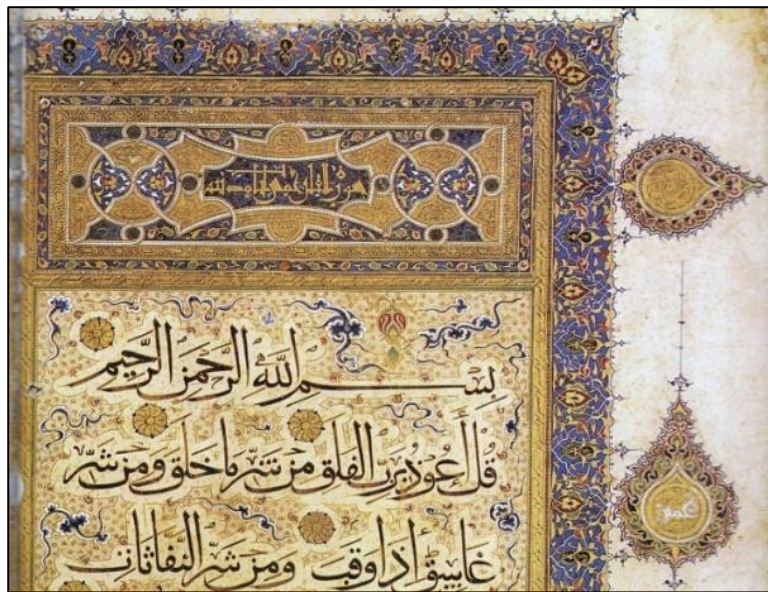 سورة الفلق
بِسْمِ اللَّهِ الرَّحْمَنِ الرَّحِيمِ
قُلْ أَعُوذُ بِرَبِّ الْفَلَقِ مِنْ شَرِّ مَا خَلَقَ وَمِنْ شَرِّ
غَاسِقٍ إِذَا وَقَبَ وَمِنْ شَرِّ النَّفَّاثَاتِ